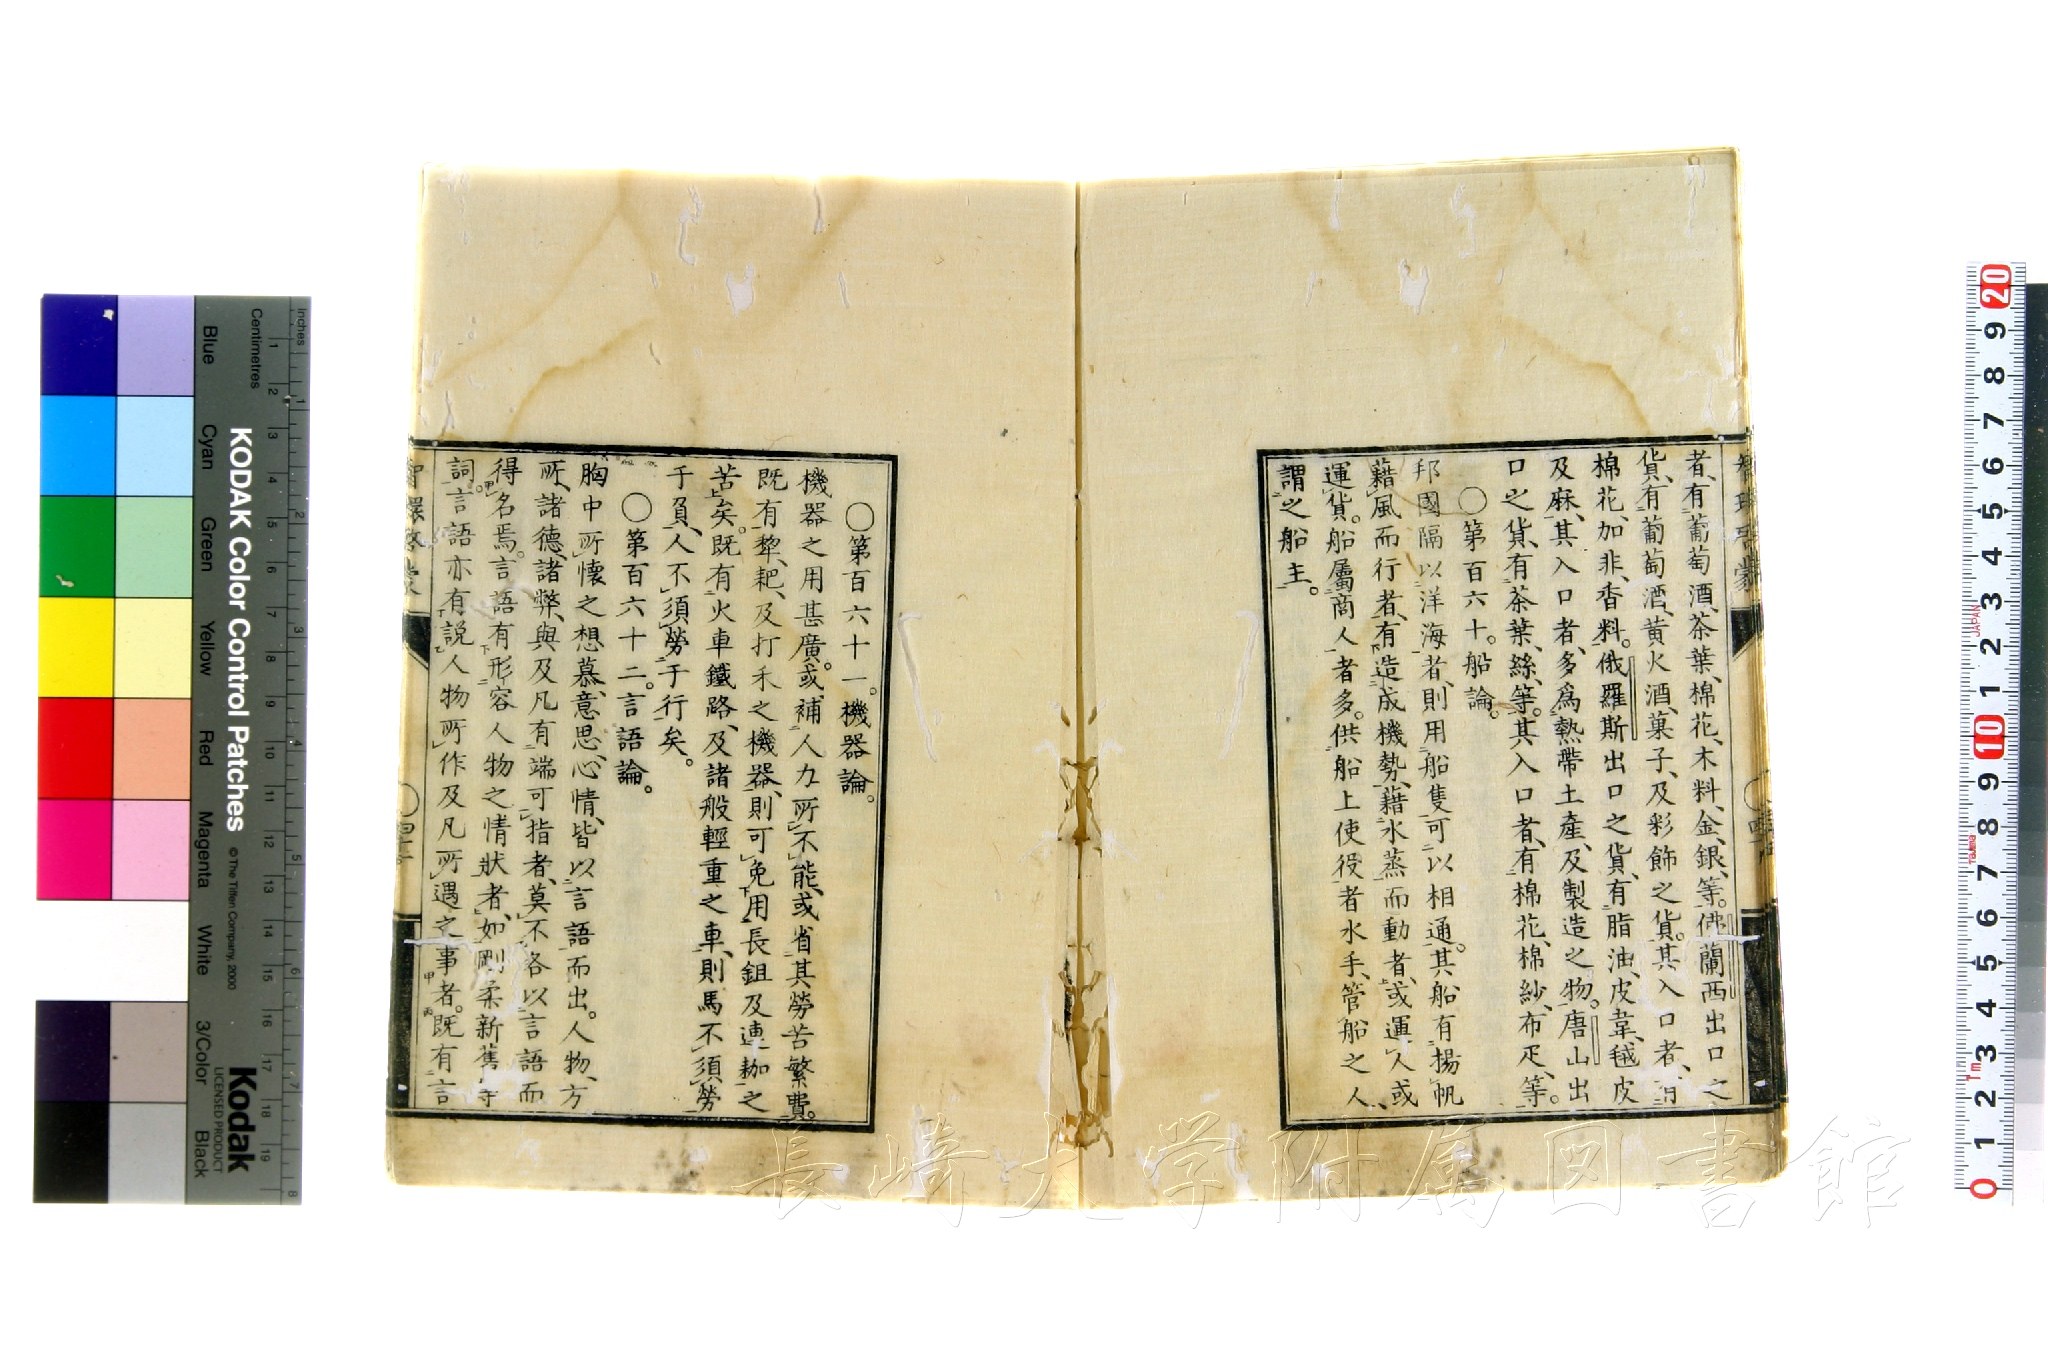 者、有葡萄酒、茶葉、棉花、木料、金、銀、等。佛蘭西出口之
貨、有葡萄酒、黃火酒、菓子、及彩飾之貨。其入口者、
棉花、加非、香料。俄羅斯出口之貨、有脂油、皮韋、毧皮
及麻、其入口者、多爲熱帶土產、及製造之物。唐山出
口之貨、有茶葉、絲、等。其入口者、有棉花、棉紗、布疋、等。
〇第百六十。船論。
邦國隔以洋海者、則用船隻可以相通。其船有揚帆
藉風而行者、有造成機勢、藉水蒸而動者、或運人或
運貨。船屬商人者多。供船上使役者水手、管船之人、
謂之船主。
〇第百六十一。機器論。
機器之用甚廣。或補人力所不能、或省其勞苦繁費。
既有犂、耙、及打禾之機器、則可免用長鉏及連耞之
苦矣。既有火車鐵路、及諸般輕重之車、則馬不須勞
于負、人不須勞于行矣。
〇第百六十二。言語論。
胸中所懷之想慕、意思、心情、皆以言語而出。人物、方
所、諸德、諸弊、與及凡有端可指者、莫不各以言語而
得名焉。言語有形容人物之情狀者、如剛柔新舊等
詞。言語亦有說人物所作及凡所遇之事者。既有言
智環啓蒙
KODAK Color Control Patches
© The Tiffen Company, 2000
Kodak
LICENSED PRODUCT
Inches
Centimetres
Blue
Cyan
Green
Yellow
Red
Magenta
White
3/Color
Black
1 2 3 4 5 6 7 8 9 10 11 12 13 14 15 16 17 18 19
1 2 3 4 5 6 7 8
20 9 8 7 6 5 4 3 2 1 10 9 8 7 6 5 4 3 2 1 0
JAPAN
Tajima
1m
長崎大学附属図書館